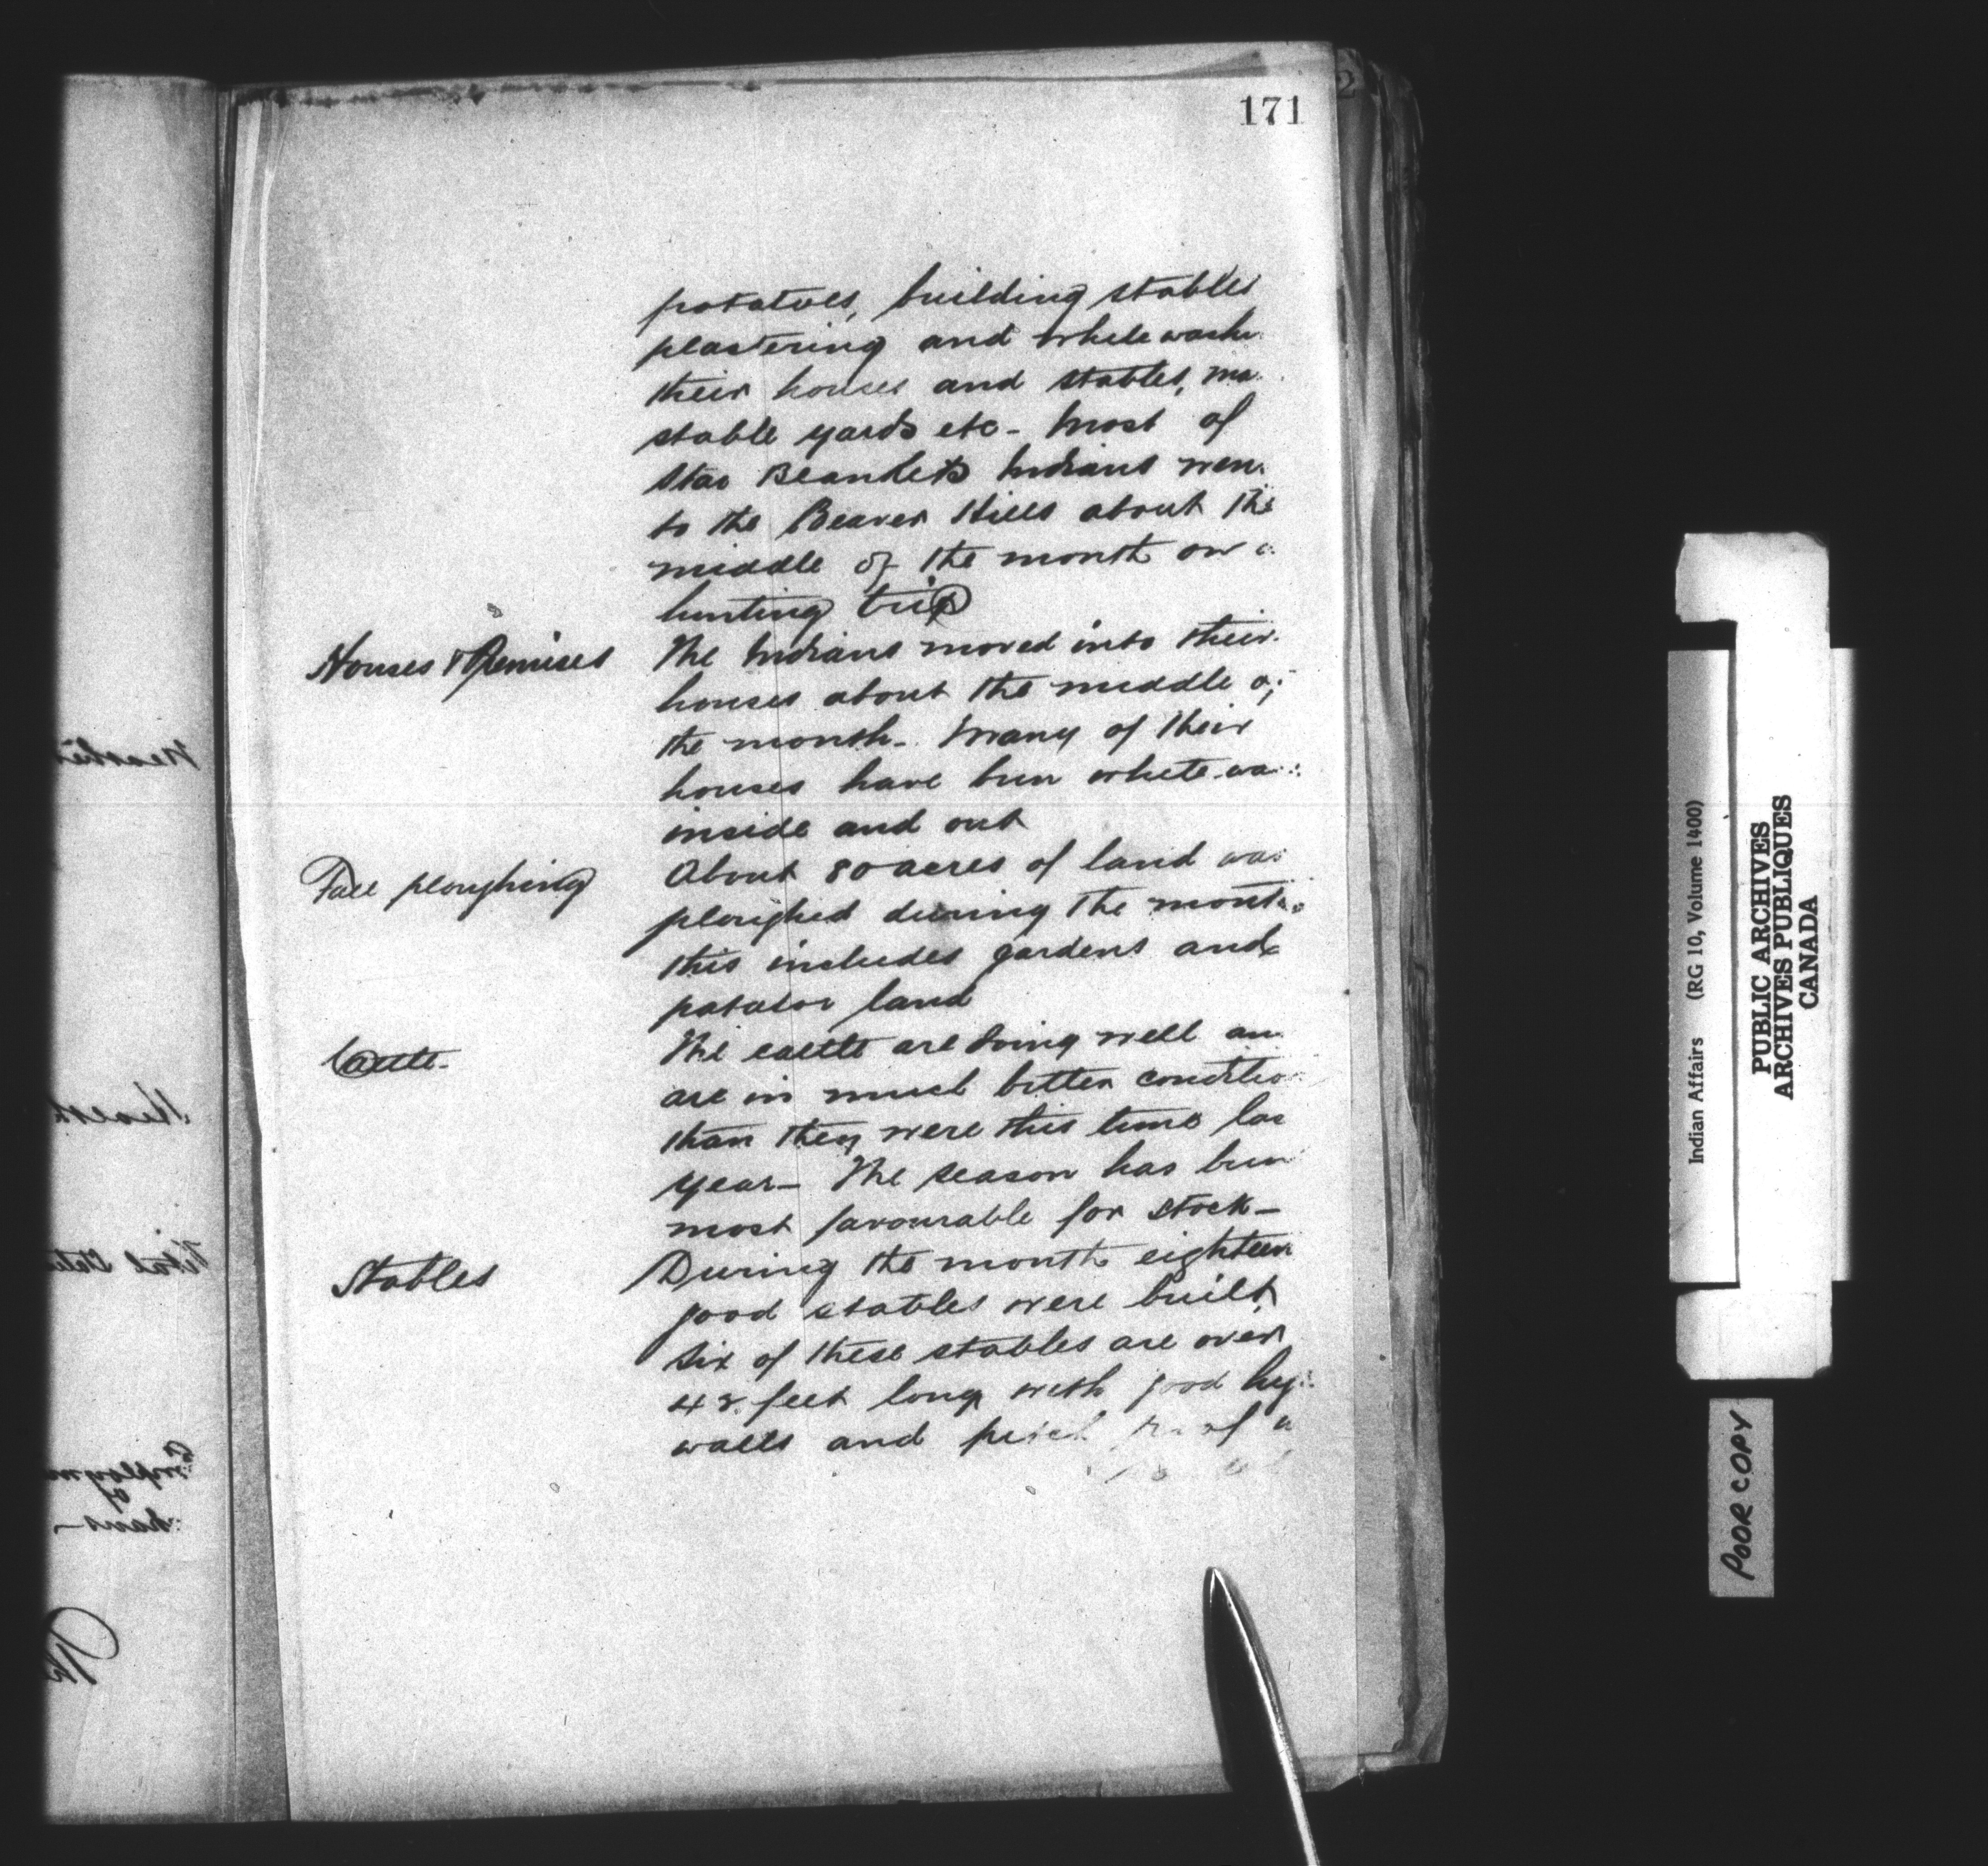 171
potatoes, building stables
plastering and white wash
their houses and stables, ma
stable yards etc - Most of
Star Blankets Indians wen
to the Beaver Hills about the
middle of the month on a
hunting trip
Houses & Premises
The Indians moved into their
houses about the middle of
the month - Many of their
houses have been white-wa
inside and out
Fall ploughing
About 80 acres of land was
ploughed during the month
this includes gardens and
patatoe land
Cattle -
The cattle are doing well an
are in much better conditio
than they were this time las
year - The season has been
most favourable for stock -
Stables
During the month eighteen
good stables were built,
six of these stables are over
42 feet long with good
walls and roof
Indian Affairs (RG 10, Volume 1400)
PUBLIC ARCHIVES
ARCHIVES PUBLIQUES
CANADA
POOR COPY